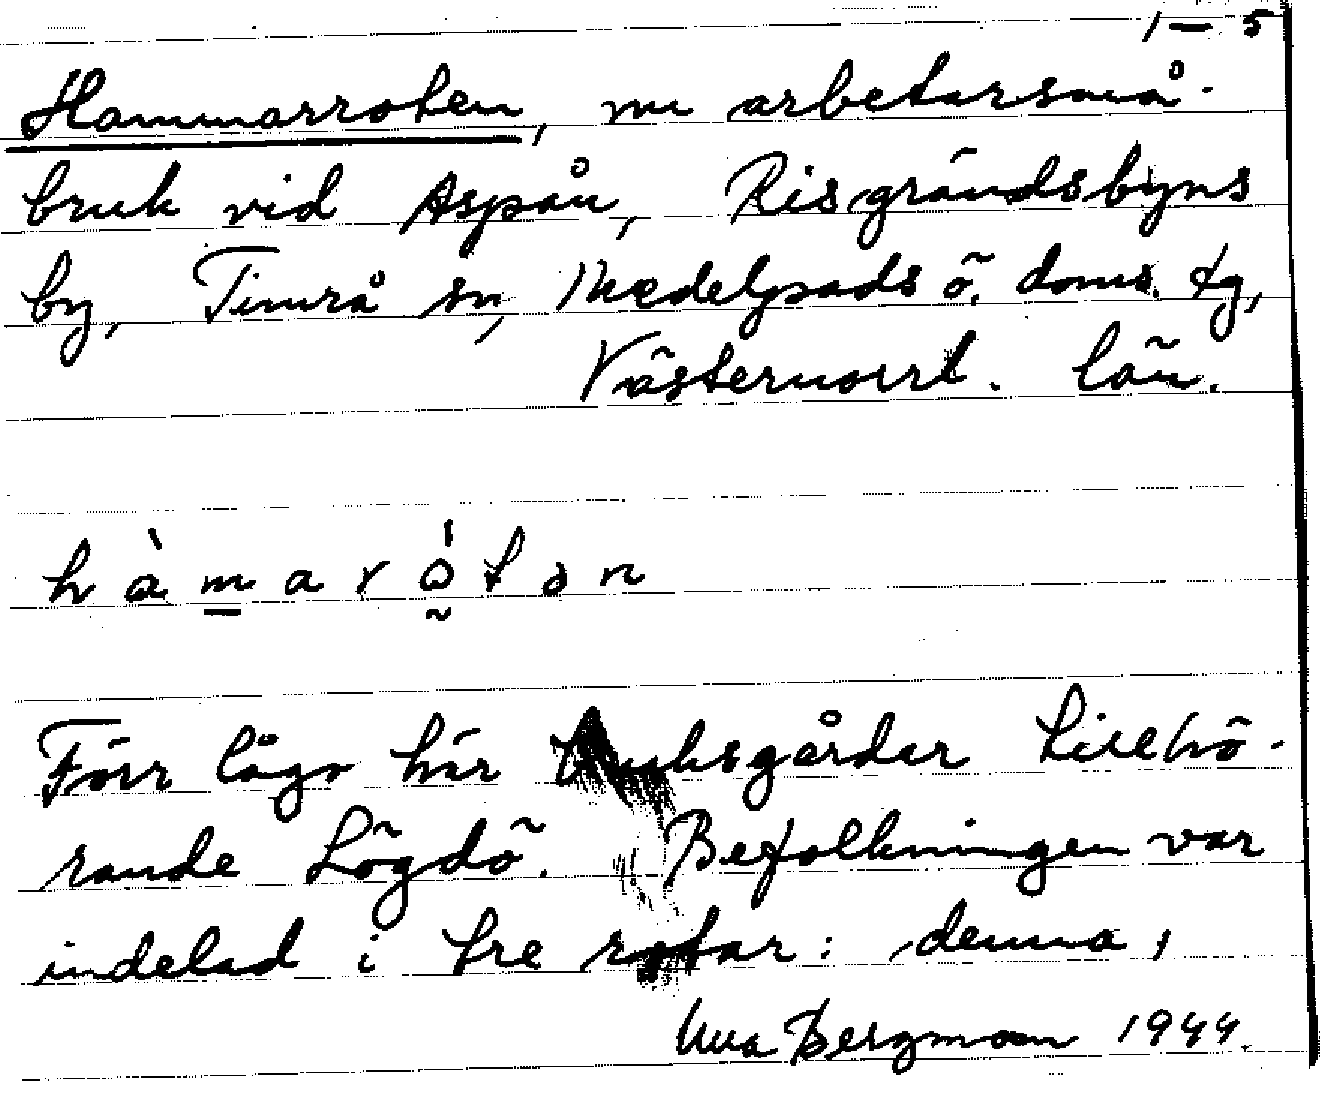 1-5
Hammarroten, nu arbetarsmå-
bruk vid Aspån, Risgrändsbyns
by, Timrå sn, Medelpads ö. doms. tg,
Västernorrl. län.
hàmaró̰tən
Förr lågo här bruksgårdar tillhö-
rande Lögdö. Befolkningen var
indelad i tre rotar: denna,
Bergman 1944.